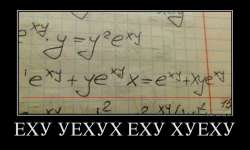 y = y²e^xy
e^xy + ye^xy x = e^xy + xye^xy
ЕХУ УЕХУХ ЕХУ ХУЕХУ